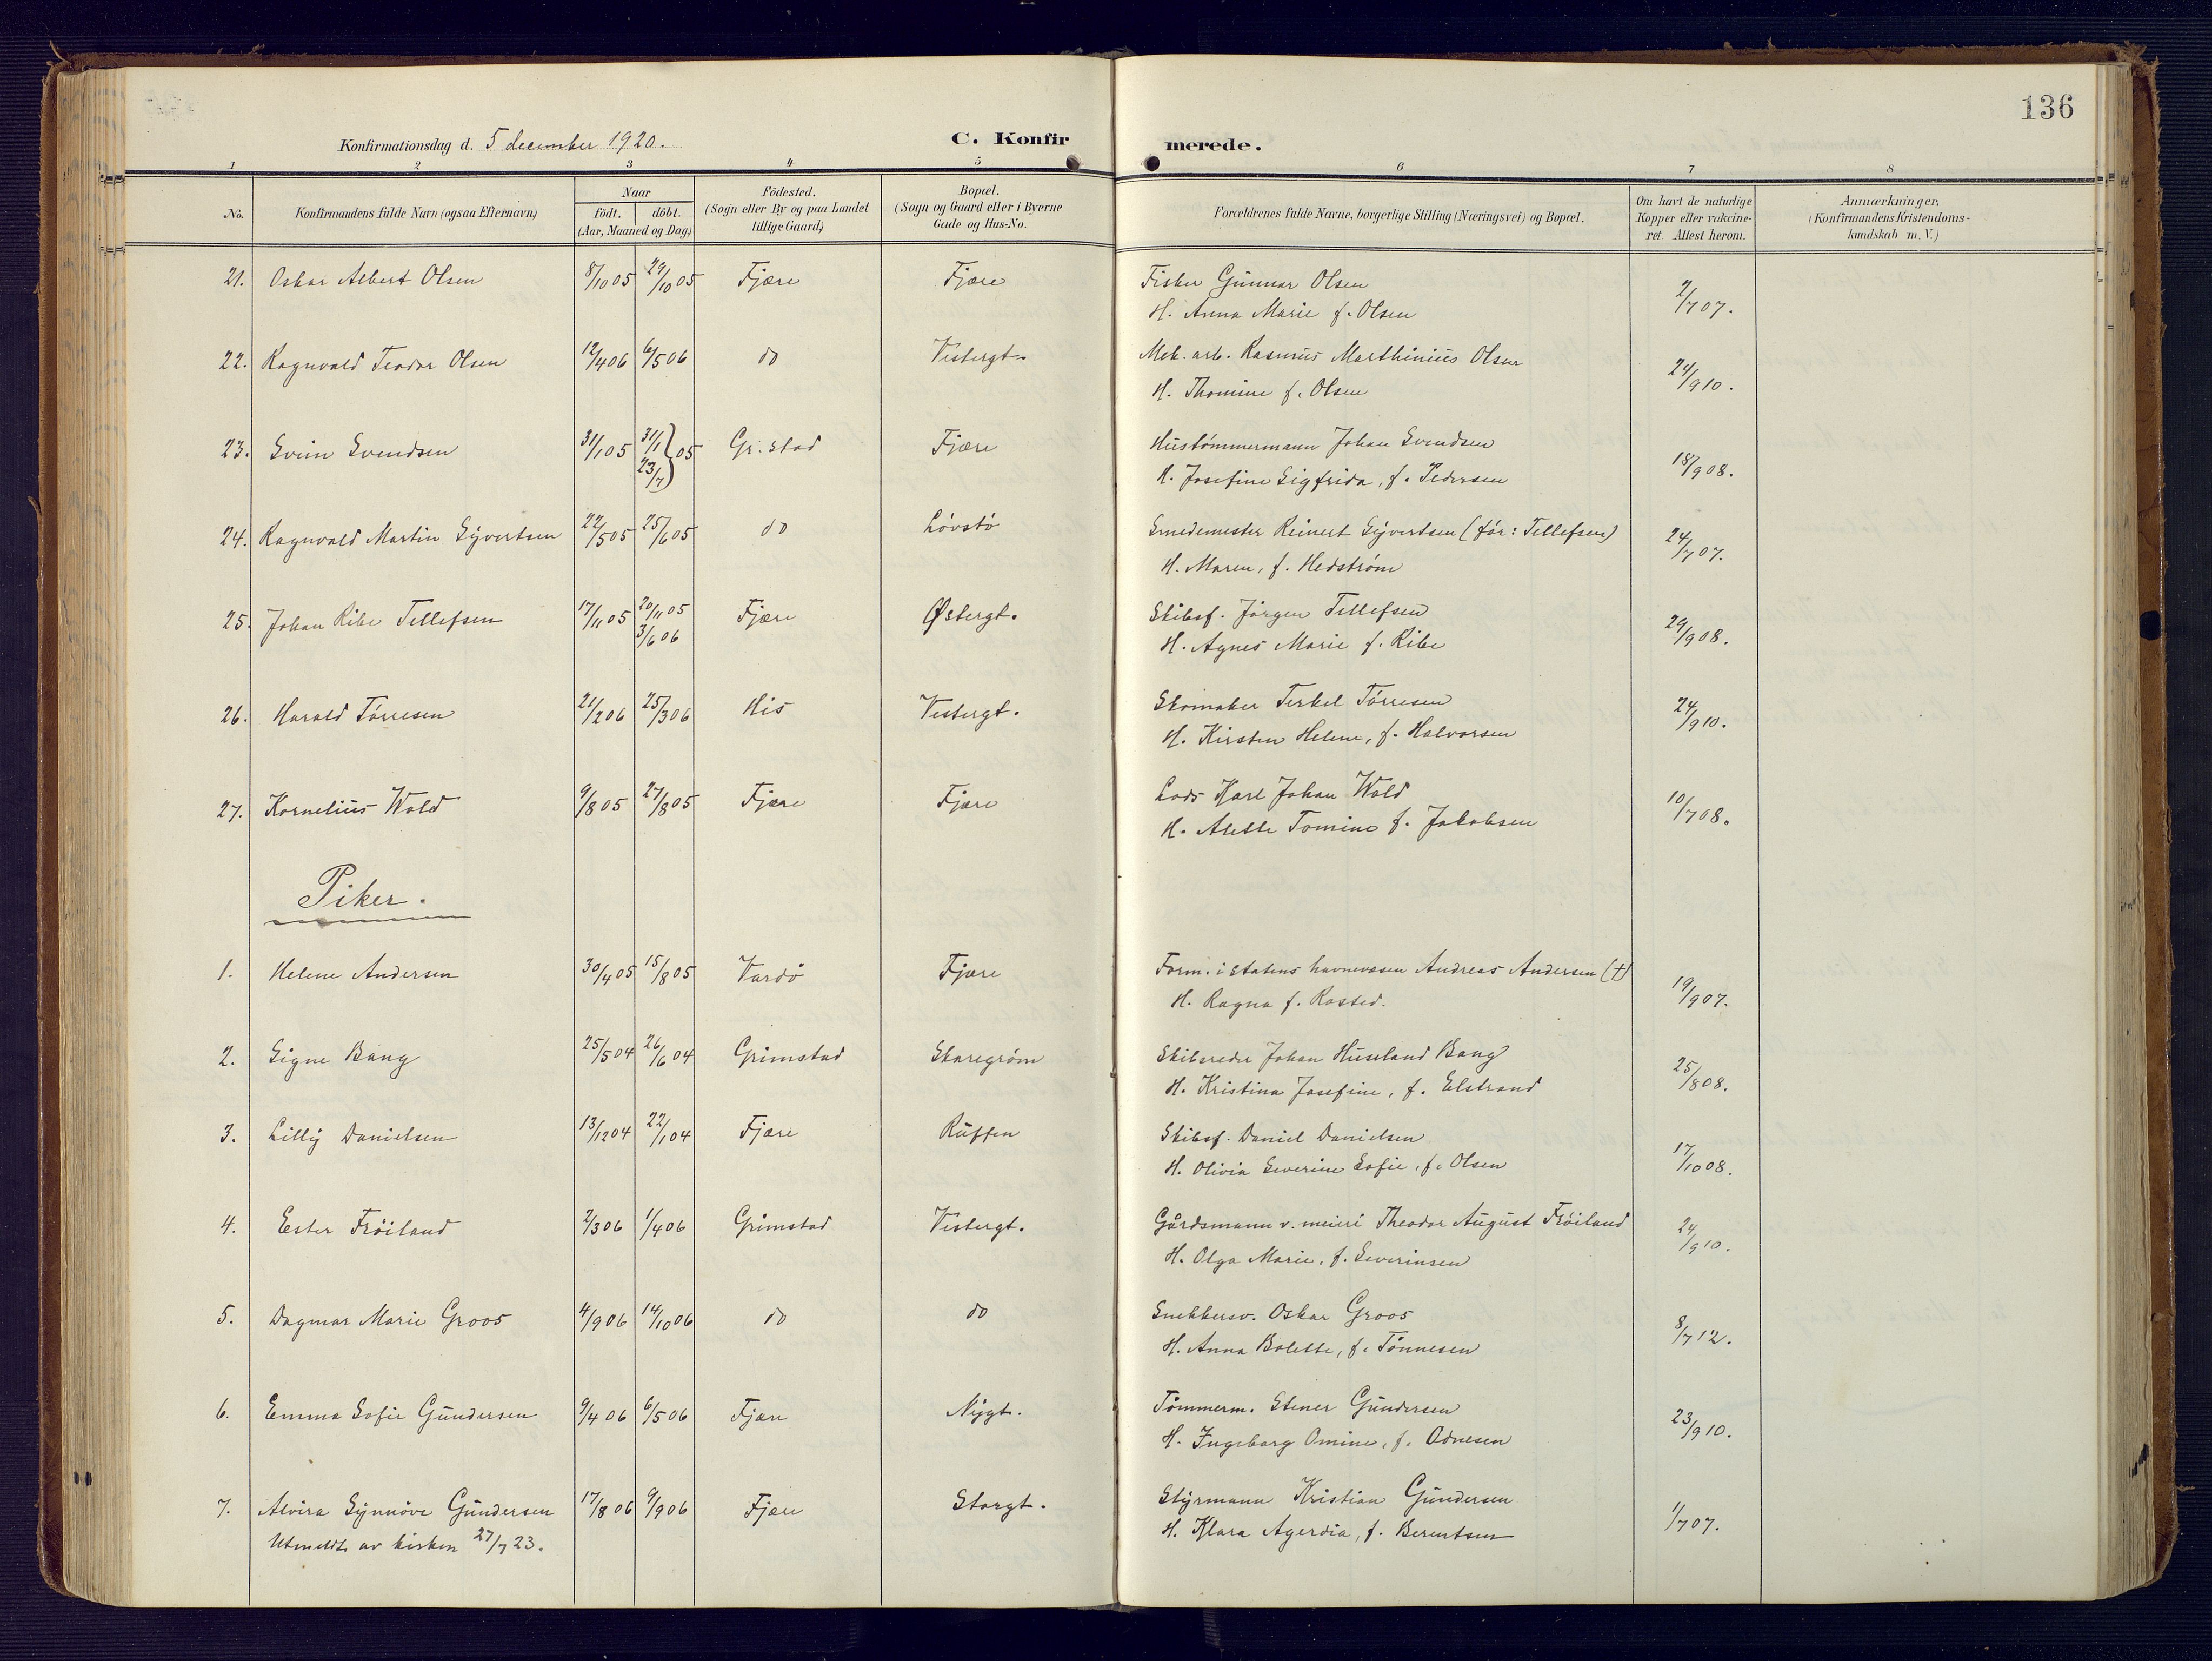 136
Konfirmationsdag d. 5 december 1920.
C. Konfir
merede.
1 2 3 4 5 6 7 8
No.
Konfirmandens fulde Navn (ogsaa Efternavn)
Naar
født. døbt.
(Aar, Maaned og Dag)
Födested.
(Sogn eller By og paa Landet
tillige Gaard)
Bopæl.
(Sogn og Gaard eller i Byerne
Gade og Hus-No.
Forældrenes fulde Navne, borgerlige Stilling (Næringsvei) og Bopæl.
Om havt de naturlige
Kopper eller vakcine-
ret. Attest herom.
Anmærkninger.
(Konfirmandens Kristendoms-
kundskab m. V.)
21. Oskar Albert Olsen 8/10 05 29/10 05 Fjære Fjære Fisker Gunnar Olsen 2/7 07.
H. Anna Marie f. Olsen
22. Ragnvald Teodor Olsen 12/4 06 6/5 06 do Vestergt. Mek. arb. Rasmus Marthinius Olsen 24/9 10.
H. Thomine f. Olsen
23. Svein Svendsen 31/1 05 31/1 23/7 } 05 Gr.stad Fjære Hustømmermann Johan Svendsen 18/9 08.
H. Josefine Sigfrida, f. Pedersen
24. Ragnvald Martin Syvertsen 22/5 05 25/6 05 do Løvstø Smedemester Reinert Syvertsen (før: Tellefsen) 24/7 07.
H. Maren, f. Hedstrøm
25. Johan Ribe Tellefsen 17/11 05 20/11 05 Fjære Østergt. Skibsf. Jørgen Tellefsen 29/9 08.
3/6 06
H. Agnes Marie f. Ribe
26. Harald Tørresen 21/2 06 25/3 06 His Vestergt. Skomaker Terkel Tørresen 24/9 10.
H. Kirsten Helene, f. Halvorsen
27. Kornelius Wold 9/8 05 27/8 05 Fjære Fjære Lods Karl Johan Wold 10/7 08.
H. Alette Tomine f. Jakobsen
Piker.
1. Helene Andersen 30/4 05 15/8 05 Vardø Fjære Form. i statens havnevæsen Andreas Andersen (†) 19/9 07.
H. Ragna f. Rosted.
2. Signe Bang 25/5 04 26/6 04 Grimstad Skaregrøm Skibsreder Johan Huseland Bang 25/8 08.
H. Kristina Josefine, f. Elstrand
3. Lilly Danielsen 13/12 04 22/1 04 Fjære Ruffen Skibsf. Daniel Danielsen 17/10 08.
H. Olivia Severine Sofie, f. Olsen
4. Ester Frøiland 2/3 06 1/4 06 Grimstad Vestergt. Gårdsmann v. meieri Theodor August Frøiland 24/9 10.
H. Olga Marie, f. Severinsen
5. Dagmar Marie Groos 4/9 06 14/10 06 do do Snekkersv. Oskar Groos 8/7 12.
H. Anna Bolette, f. Tønnesen
6. Emma Sofie Gundersen 9/4 06 6/5 06 Fjære Nygt. Tømmerm. Stener Gundersen 23/9 10.
H. Ingeborg Omine, f. Odnesen
7. Alvira Synnøve Gundersen 17/8 06 9/9 06 Fjære Storgt. Styrmann Kristian Gundersen 1/7 07.
Utmeldt av kirken 27/7 23. H. Klara Agerdia, f. Berentsen